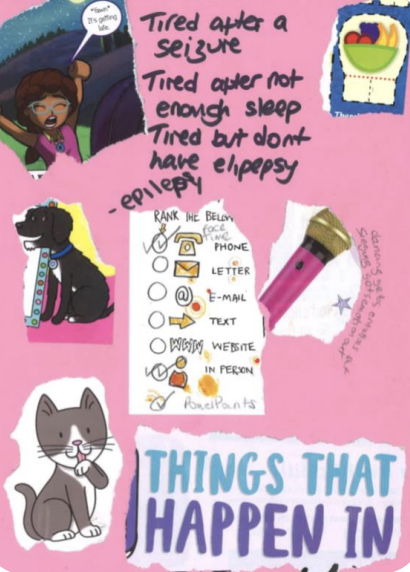 *Yawn*
It's getting
late.
Tired after a
seizure
Tired after not
enough sleep
Tired but dont
have elipepsy
-epilepsy
RANK THE BELOW
FACE
TIME
PHONE
LETTER
@ E-MAIL
TEXT
WWW WEBSITE
IN PERSON
PowerPoints
THINGS THAT
HAPPEN IN